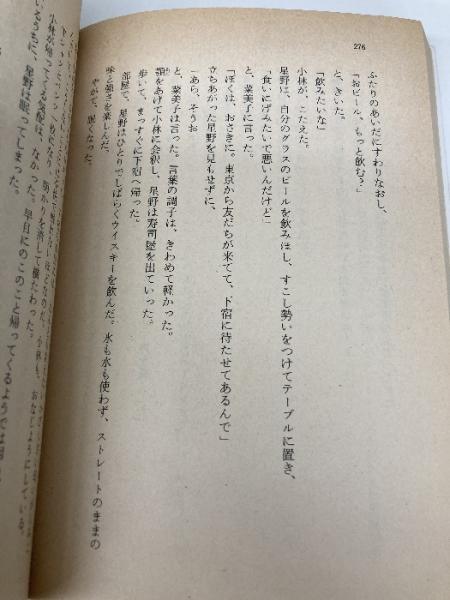 276
ふたりのあいだにすわりなおし、
「おビール、もっと飲む?」
と、きいた。
「飲みたいな」
小林が、こたえた。
星野は、自分のグラスのビールを飲みほし、すこし勢いをつけてテーブルに置き、
「食いにげみたいで悪いんだけど」
と、菜美子に言った。
「ぼくは、おさきに。東京から友だちが来てて、下宿に待たせてあるんで」
立ちあがった星野を見もせずに、
「あら、そうお」
と、菜美子は言った。言葉の調子は、きわめて軽かった。
顎をあげて小林に会釈し、星野は寿司屋を出ていった。
歩いて、まっすぐに下宿へ帰った。
部屋で、星野はひとりでしばらくウイスキーを飲んだ。氷も水も使わず、ストレートのままの
味と強さを楽しんだ。
やがて、眠くなった。
明かりを消して横たわった。
小林が帰ってくる気配は、なかった。早目にのこのこ帰ってくるようでは
いるうちに、星野は眠ってしまった。